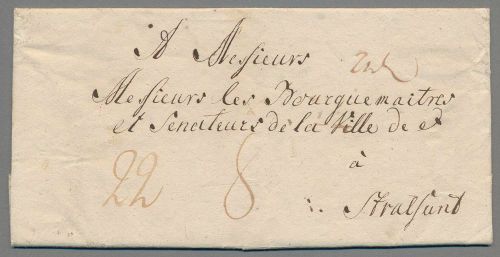 A Messieurs
Messieurs les Bourguemaitres
et Senateurs de la Ville de
à
22 8
Stralsund